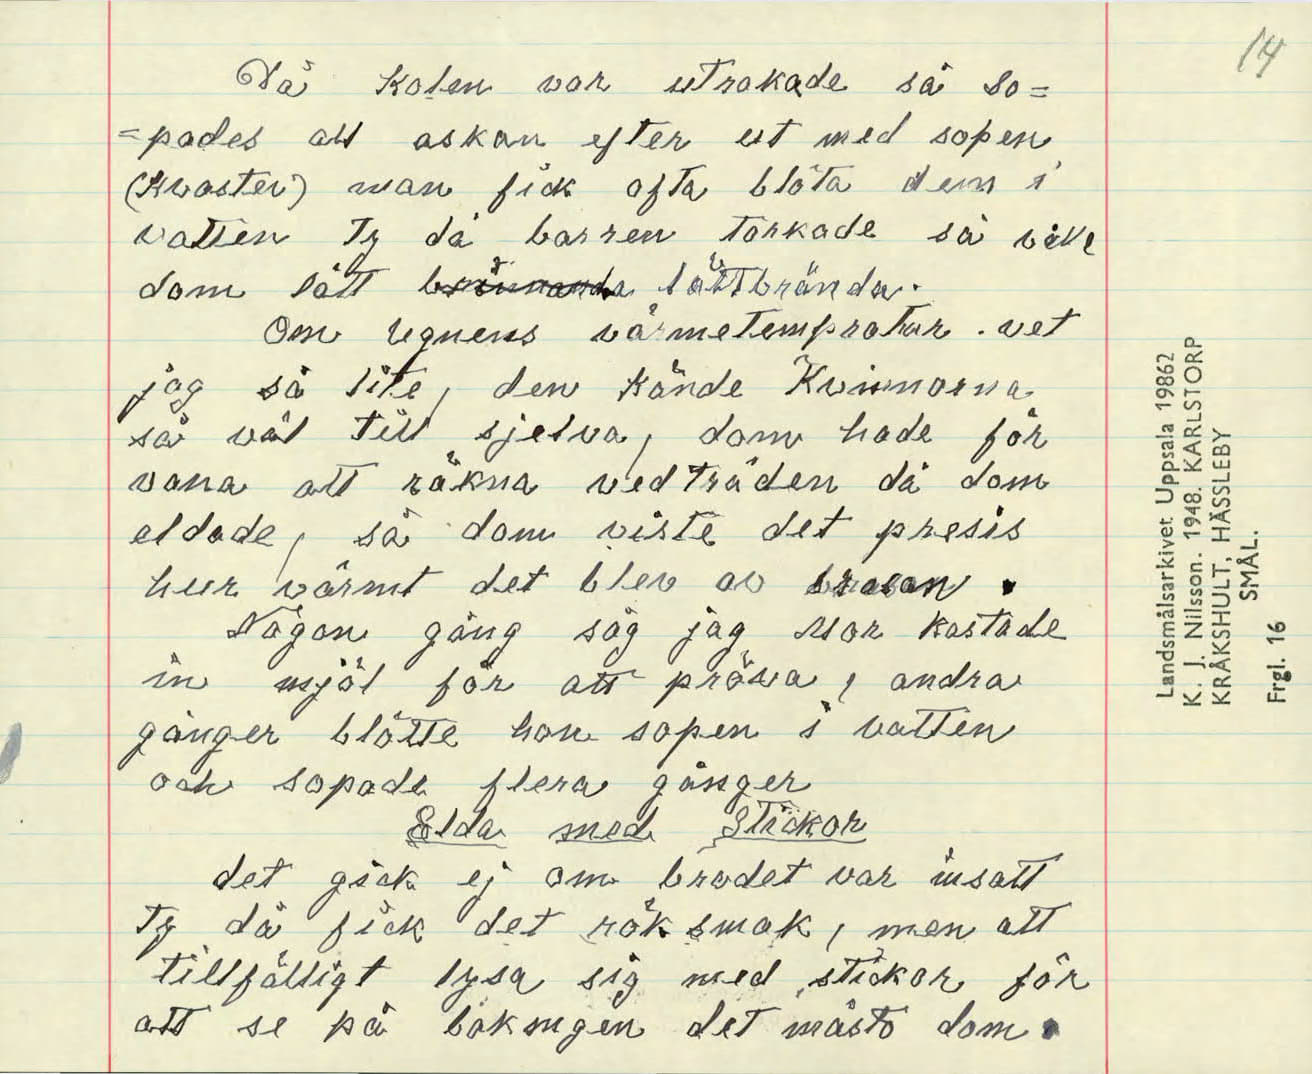 14
Då Kolen var utrakade så so=
=pades all askan efter ut med sopen
(Kvasten) man fick ofta blöta den i
vatten Ty då barren torkade så vihl
dom lätt lättbrända.
Om Ugnens värmetempratur vet
jag så lite, den kände Kvinnorna
så väl till sjelva, dom hade för
vana att räkna vedträden då dom
eldade, så dom viste det presis
hur värmt det blev av brasan.
Någon gång såg jag Mor kastade
in mjöl för att pröva, andra
gånger blötte hon sopen i vatten
och sopade flera gånger
Elda med Stickor
det gick ej om brödet var insatt
Ty då fick det röksmak, men att
tillfälligt lysa sig med stickor för
att se på bakningen det måsto dom.
Landsmålsarkivet Uppsala 19862
K. J. Nilsson. 1948. KARLSTORP
KRÅKSHULT, HÄSSLEBY
SMÅL.
Frgl. 16